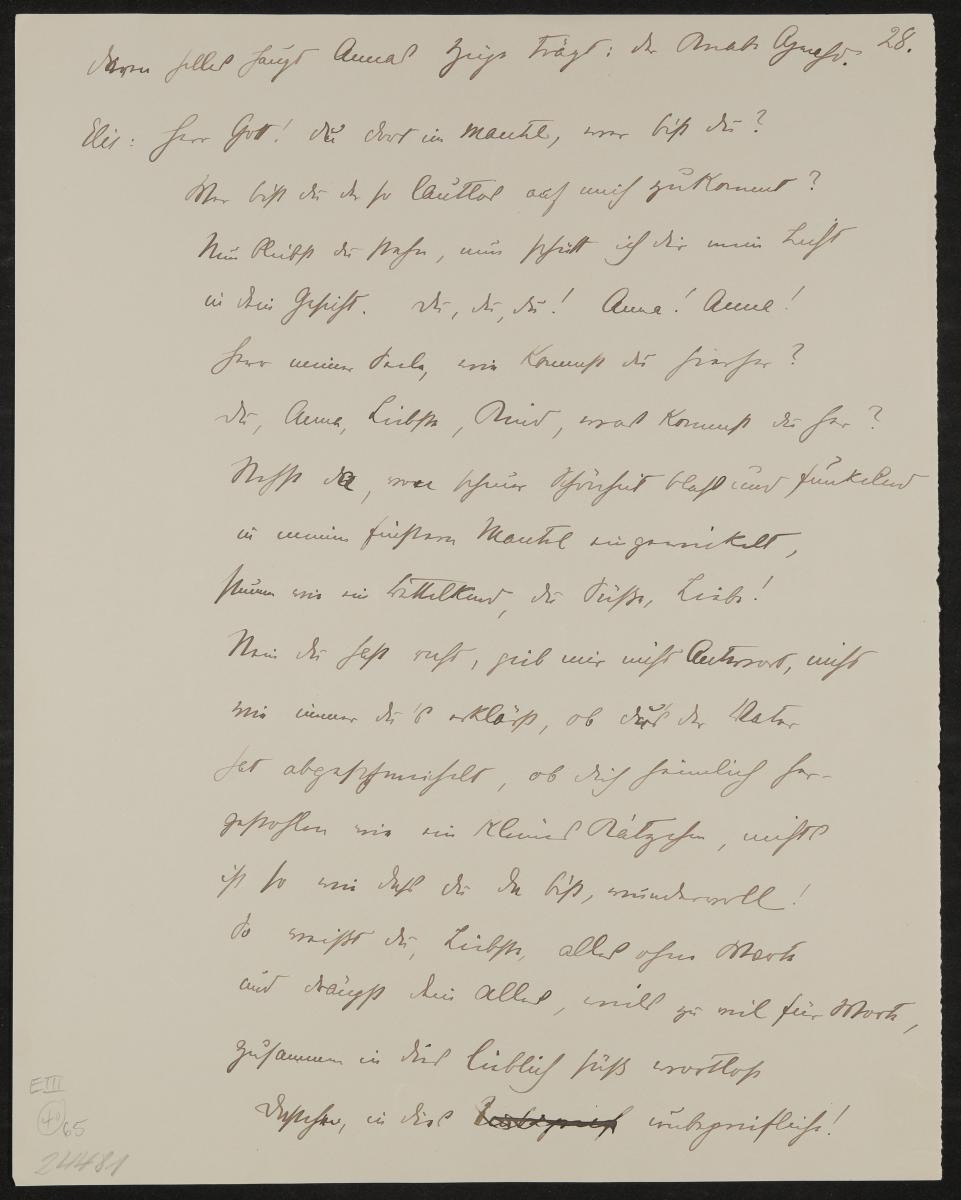 deren helles Haupt Annas Züge trägt: der Knabe Agmahd. 28.
Elis: Herr Gott! du dort im Mantel, wer bist du?
Wer bist du der so lautlos auf mich zukommt?
Nun bleibst du stehn, nun schütt ich dir mein Licht
in dein Gesicht. Du, du, du! Anna! Anna!
Herr meiner Seele, wie kommst du hierher?
Du, Anna, Liebste, Kind, was kommst du her?
Stehst da, von scheuer Schönheit blass und funkelnd
in meinen finstern Mantel eingewickelt,
stumm wie ein Bettelkind, du Süße, Liebe!
Nein du hast recht, gieb mir nicht Antwort, nicht
wie immer du's erklärst, ob du's der Vater
hat abgeschmeichelt, ob dich heimlich her-
gestohlen wie ein kleines Kätzchen, nichts
ist so wie dass du da bist, wundervoll!
So weißt du, Liebste, alles ohne Worte
und drängst dein Alles, viel zu viel für Worte,
zusammen in dies lieblich süß wortlose
Dastehen, in dies unbegreifliche!
E III
40
65
24481